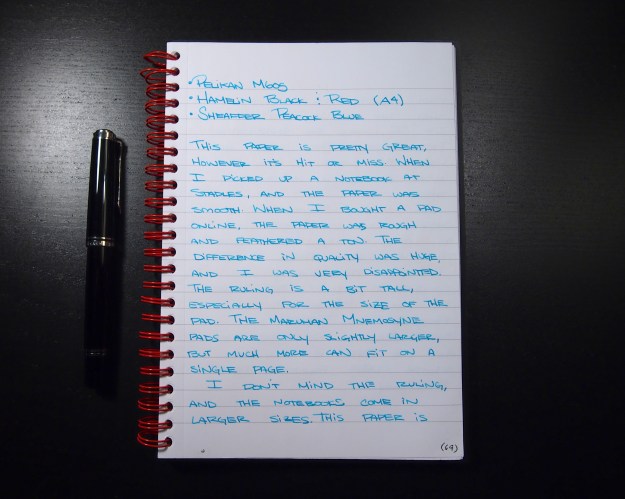 • Pelikan M605
• Hamelin Black : Red (A4)
• Sheaffer Peacock Blue
This paper is pretty great,
however it's hit or miss when
I picked up a notebook at
Staples, and the paper was
smooth. When I bought a pad
online, the paper was rough
and feathered a ton. The
difference in quality was huge,
and I was very disappointed.
The ruling is a bit tall,
especially for the size of the
pad. The Maruman Mnemosyne
pads are only slightly larger,
but much more can fit on a
single page.
I don't mind the ruling,
and the notebooks come in
larger sizes. This paper is
(69)